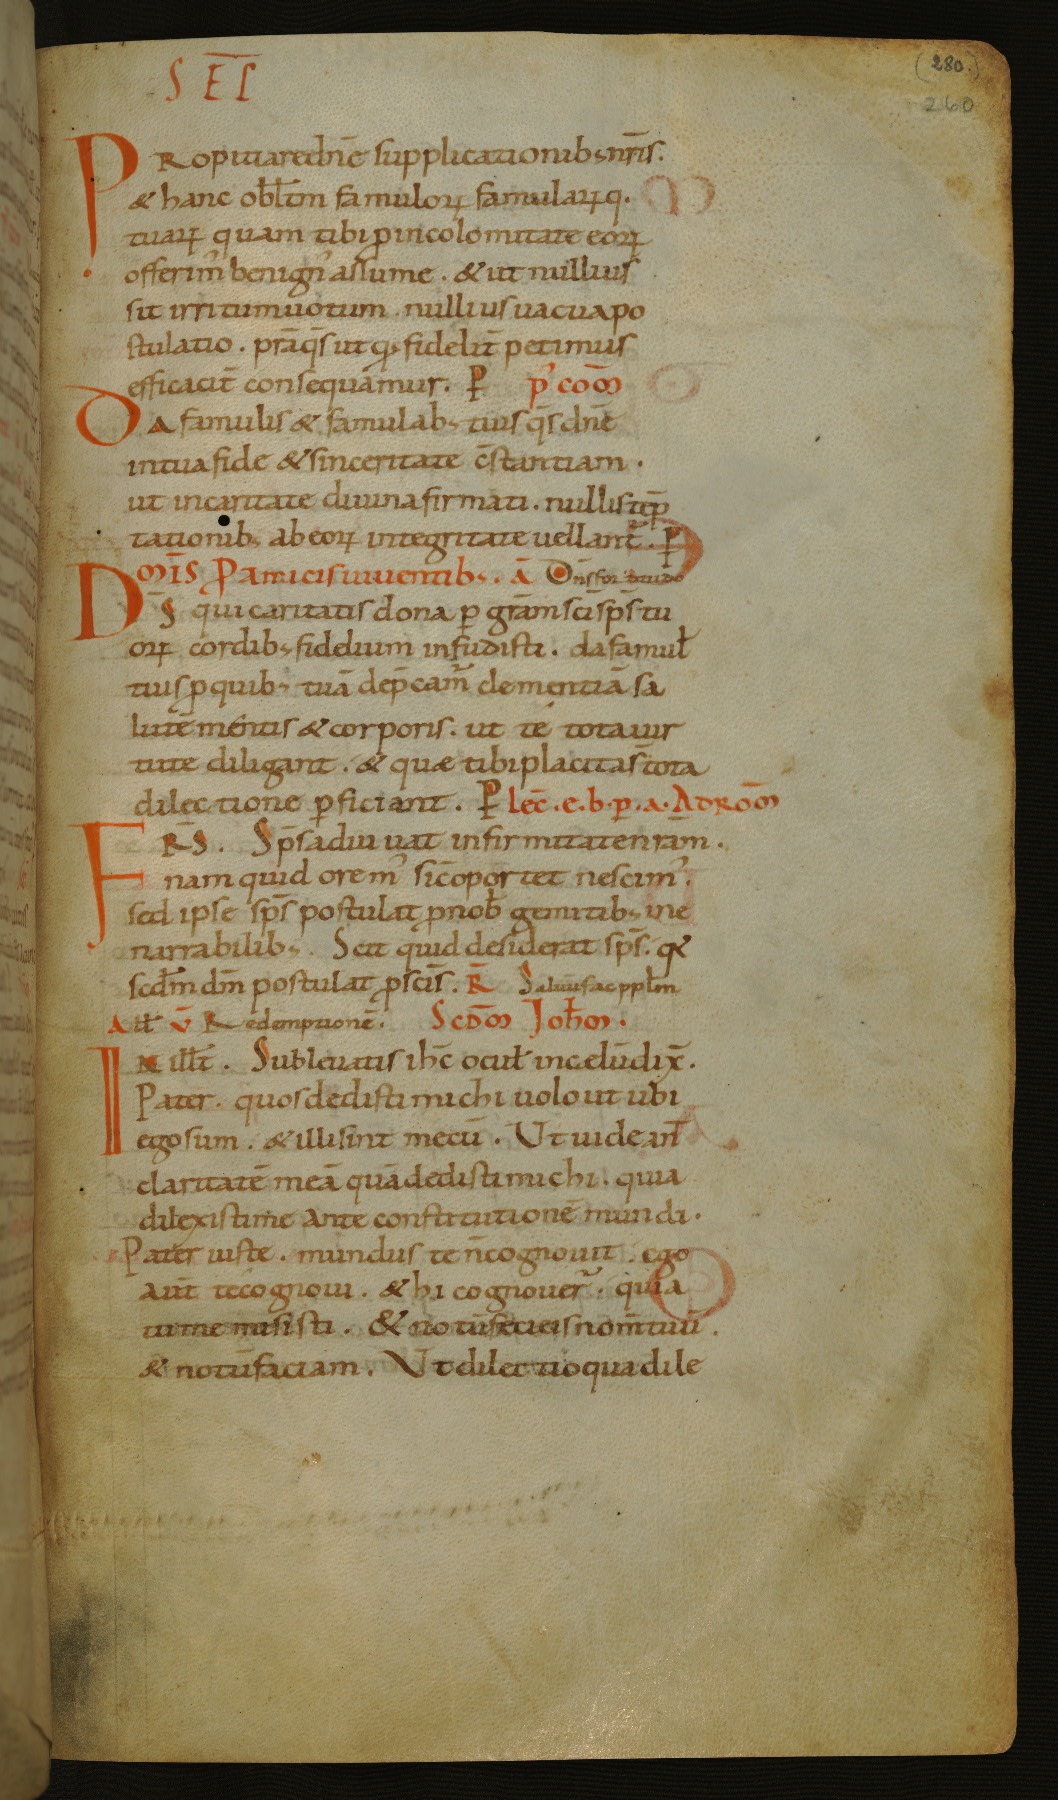 S EI
(280.)
260
PRopitiare dnē supplicationib; nr̄is.
& hanc obl̄tm famuloꝝ famulaꝝq.
tuaꝝ quam tibi ꝓ incolomitate eoꝝ
offerim᾽ benign᾽ assume. & ut nullius
sit irritum uotum. nullius uacua po
stulatio. pr̄a q̄s ut q; fidelit̄ petimus
efficacit̄ consequamur. P p᾽ com̄
DA famulis & famulab; tuis q̄s dnē
in tua fide & sinceritate c̄stantiam.
ut in caritate diuina firmati. nullis tēp
tationib; ab eoꝝ integritate uellant᾽. P
Mis̄ Pamicis uiuentib;. A᷅ Dn̄s for titudo
Ds̄ qui caritatis dona p gr̄am sci sp̄s tu
oꝝ cordib; fidelium infudisti. da famul̄
tuis ꝓ quib; tuā dep̄cam᾽ clementiā sa
lutē mentis & corporis. ut te tota uir
tute diligant. & quæ tibi placita s̄ tota
dilectione ꝑficiant. P lec̄. e. b. p. a. Ad Rom̄
FRS. Sp̄s adiuuat infirmitatē nr̄am.
nam quid orem᾽ sic̄ oportet nescim᾽.
sed ipse sp̄s postulat ꝓ nob̄ gemitib; ine
narrabilib;. Scit quid desiderat sp̄s. q̄a
scd̄m dm̄ postulat ꝓ scīs. R̄ Saluū fac pplm̄
All̄ v̄ Redemptionē. Scd̄m Joh̄m.
IN ill̄t. Subleuatis ih̄c ocul̄ in cælū dix̄.
Pater. quos dedisti michi uolo ut ubi
ego sum. & illi sint mecū. Ut uidean̄
claritatē meā quā dedisti michi. quia
dilexisti me ante constitutionē mundi.
Pater iuste. mundus te n̄ cognouit. ego
aut̄ te cognoui. & hi cognouer᾽. quia
tu me misisti. & notū feci eis nom̄ tuū.
& notū faciam. Ut dilectio qua dile